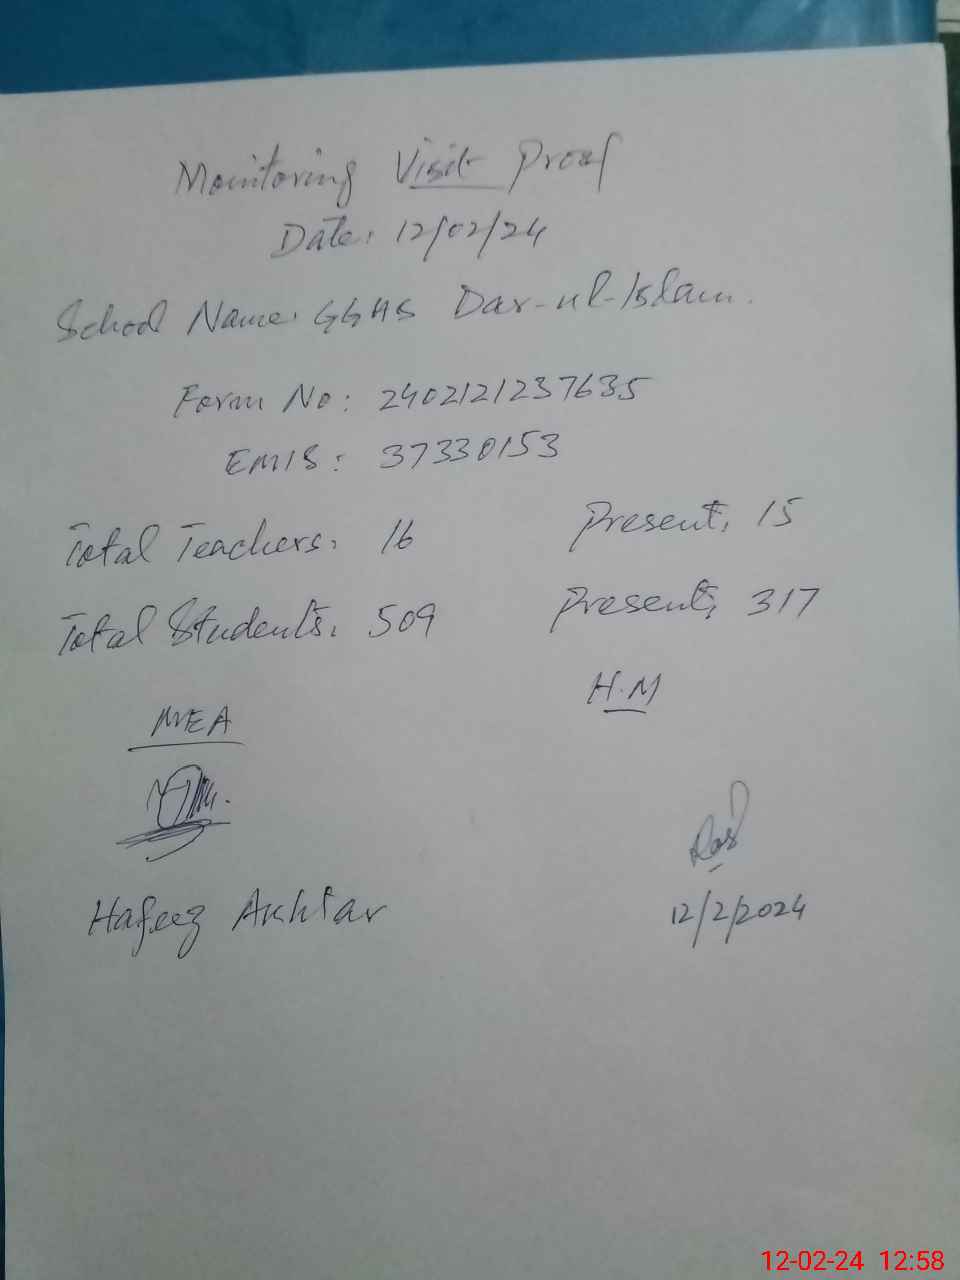 Monitoring Visit Proof
Date: 12/02/24
School Name: GGHS Dar-ul-Islam.
Form No: 2402121237635
EMIS: 37330153
Total Teachers: 16 Present: 15
Total Students: 509 Present: 317
MEA H.M
Hafeez Akhtar 12/2/2024
12-02-24 12:58